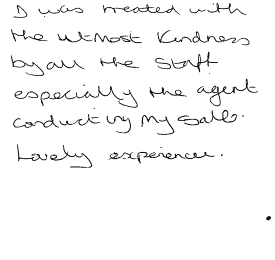 I was treated with
the utmost kindness
by all the staff
especially the agent
conducting my sale.
Lovely experience.